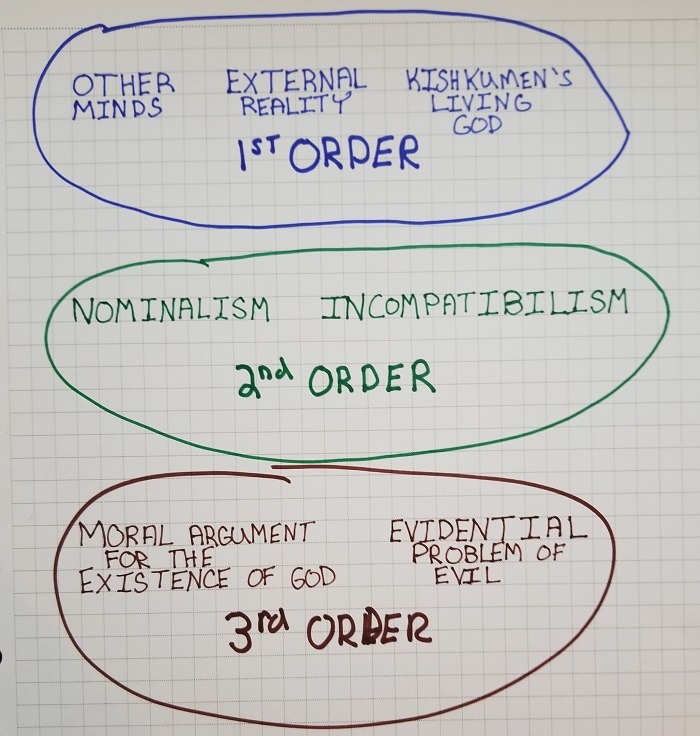 OTHER MINDS
EXTERNAL REALITY
KISHKUMEN'S LIVING GOD
1ST ORDER
NOMINALISM INCOMPATIBILISM
2nd ORDER
MORAL ARGUMENT
FOR THE
EXISTENCE OF GOD
EVIDENTIAL
PROBLEM OF
EVIL
3rd ORDER